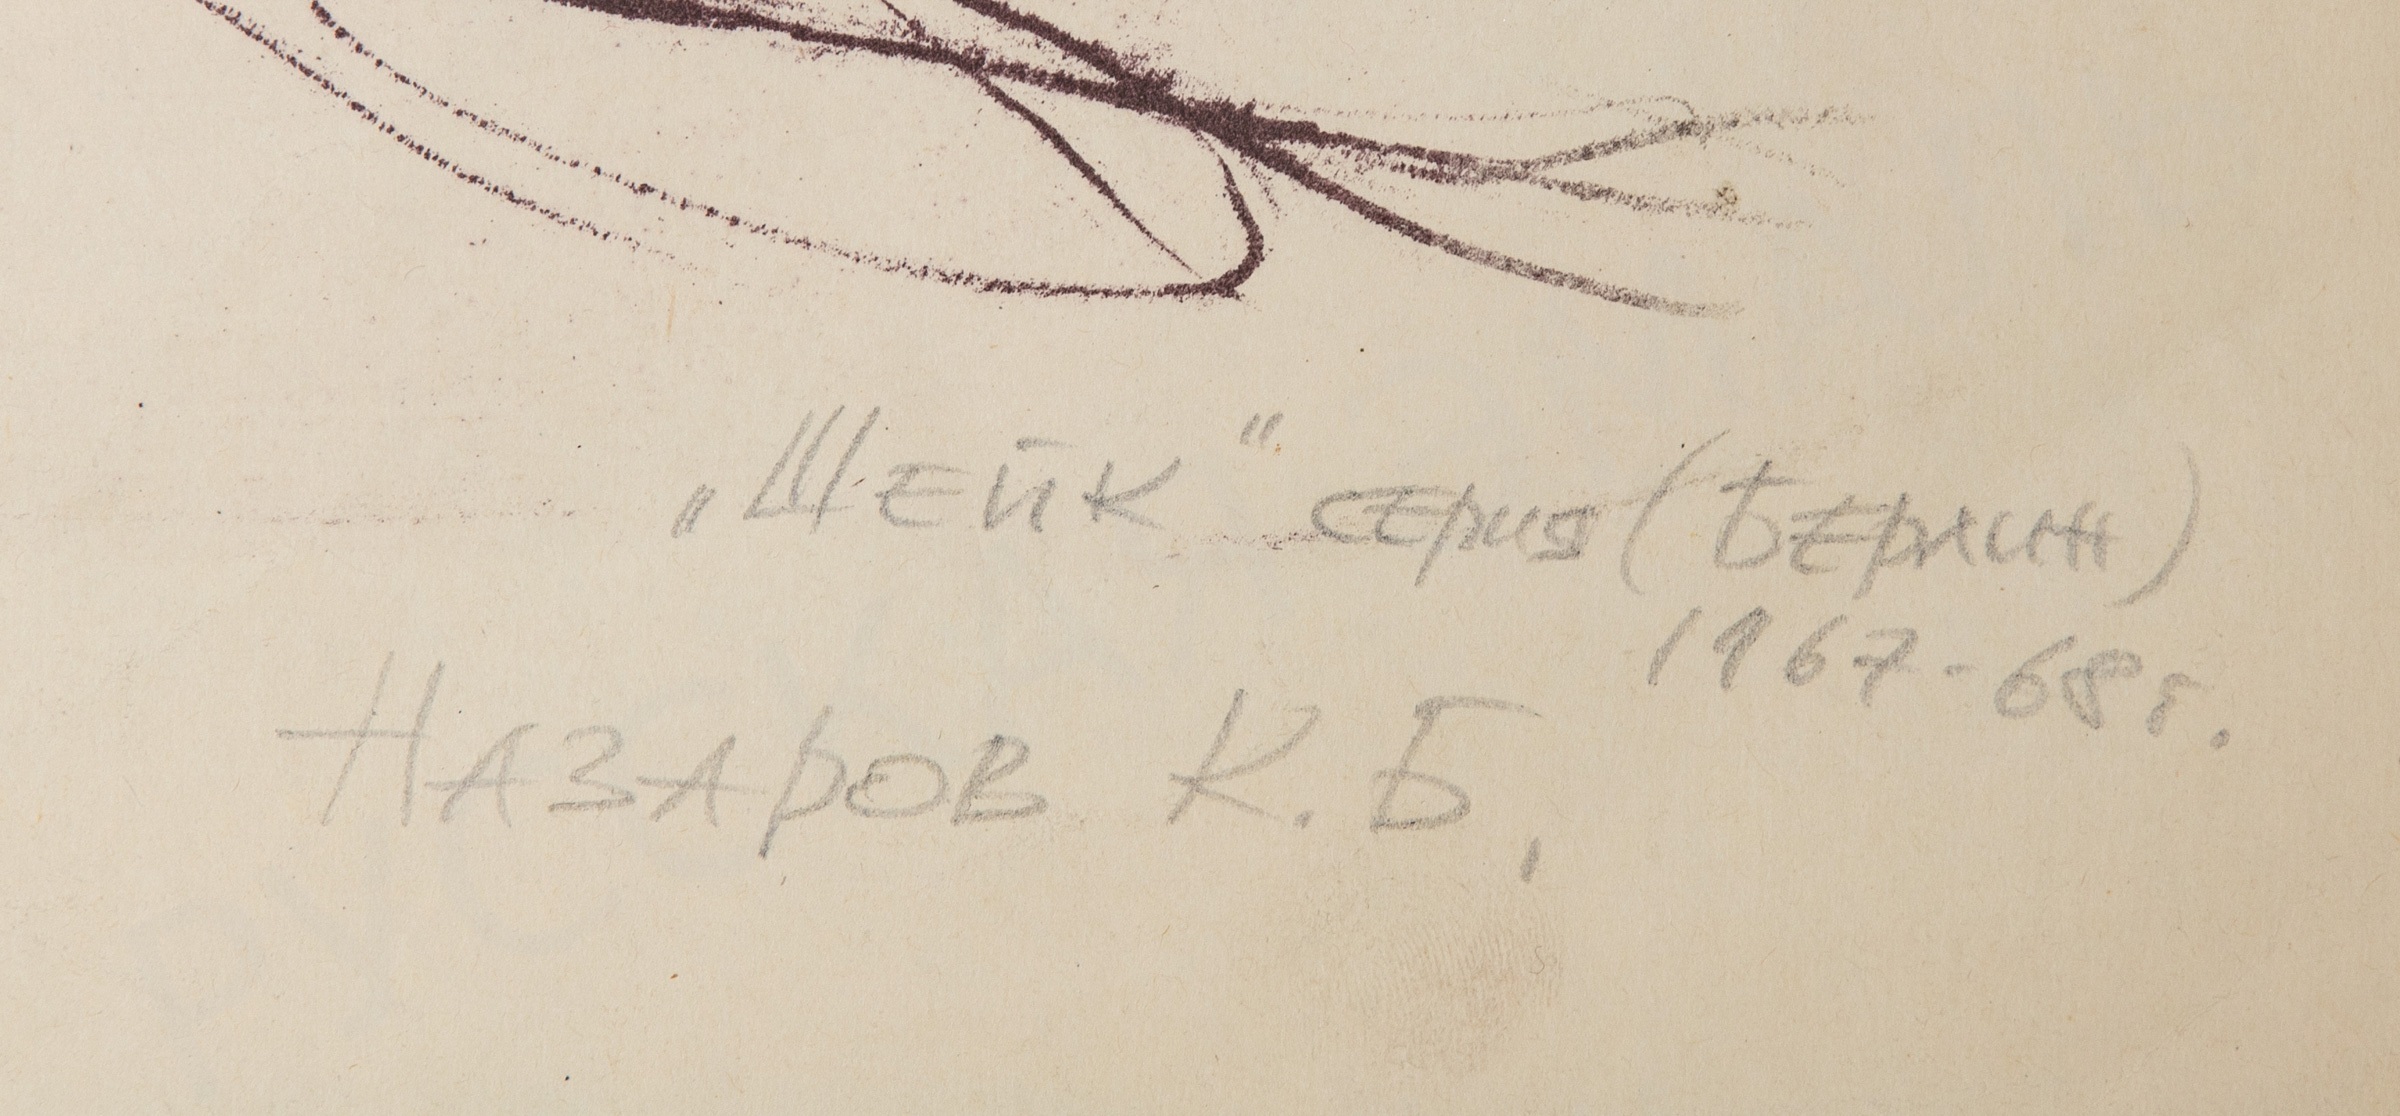 „Шейк“ серия (Берлин)
1967-68г.
Назаров К.Б.